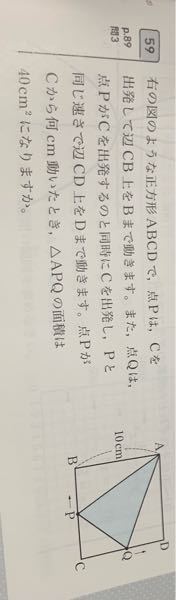 59
p.89
問3
右の図のような正方形ABCDで，点Pは，Cを
出発して辺CB上をBまで動きます。また，点Qは，
点PがCを出発するのと同時にCを出発し，Pと
同じ速さで辺CD上をDまで動きます。点Pが
Cから何cm動いたとき，△APQの面積は
40cm²になりますか。
A
D
10cm
Q
B
P
C